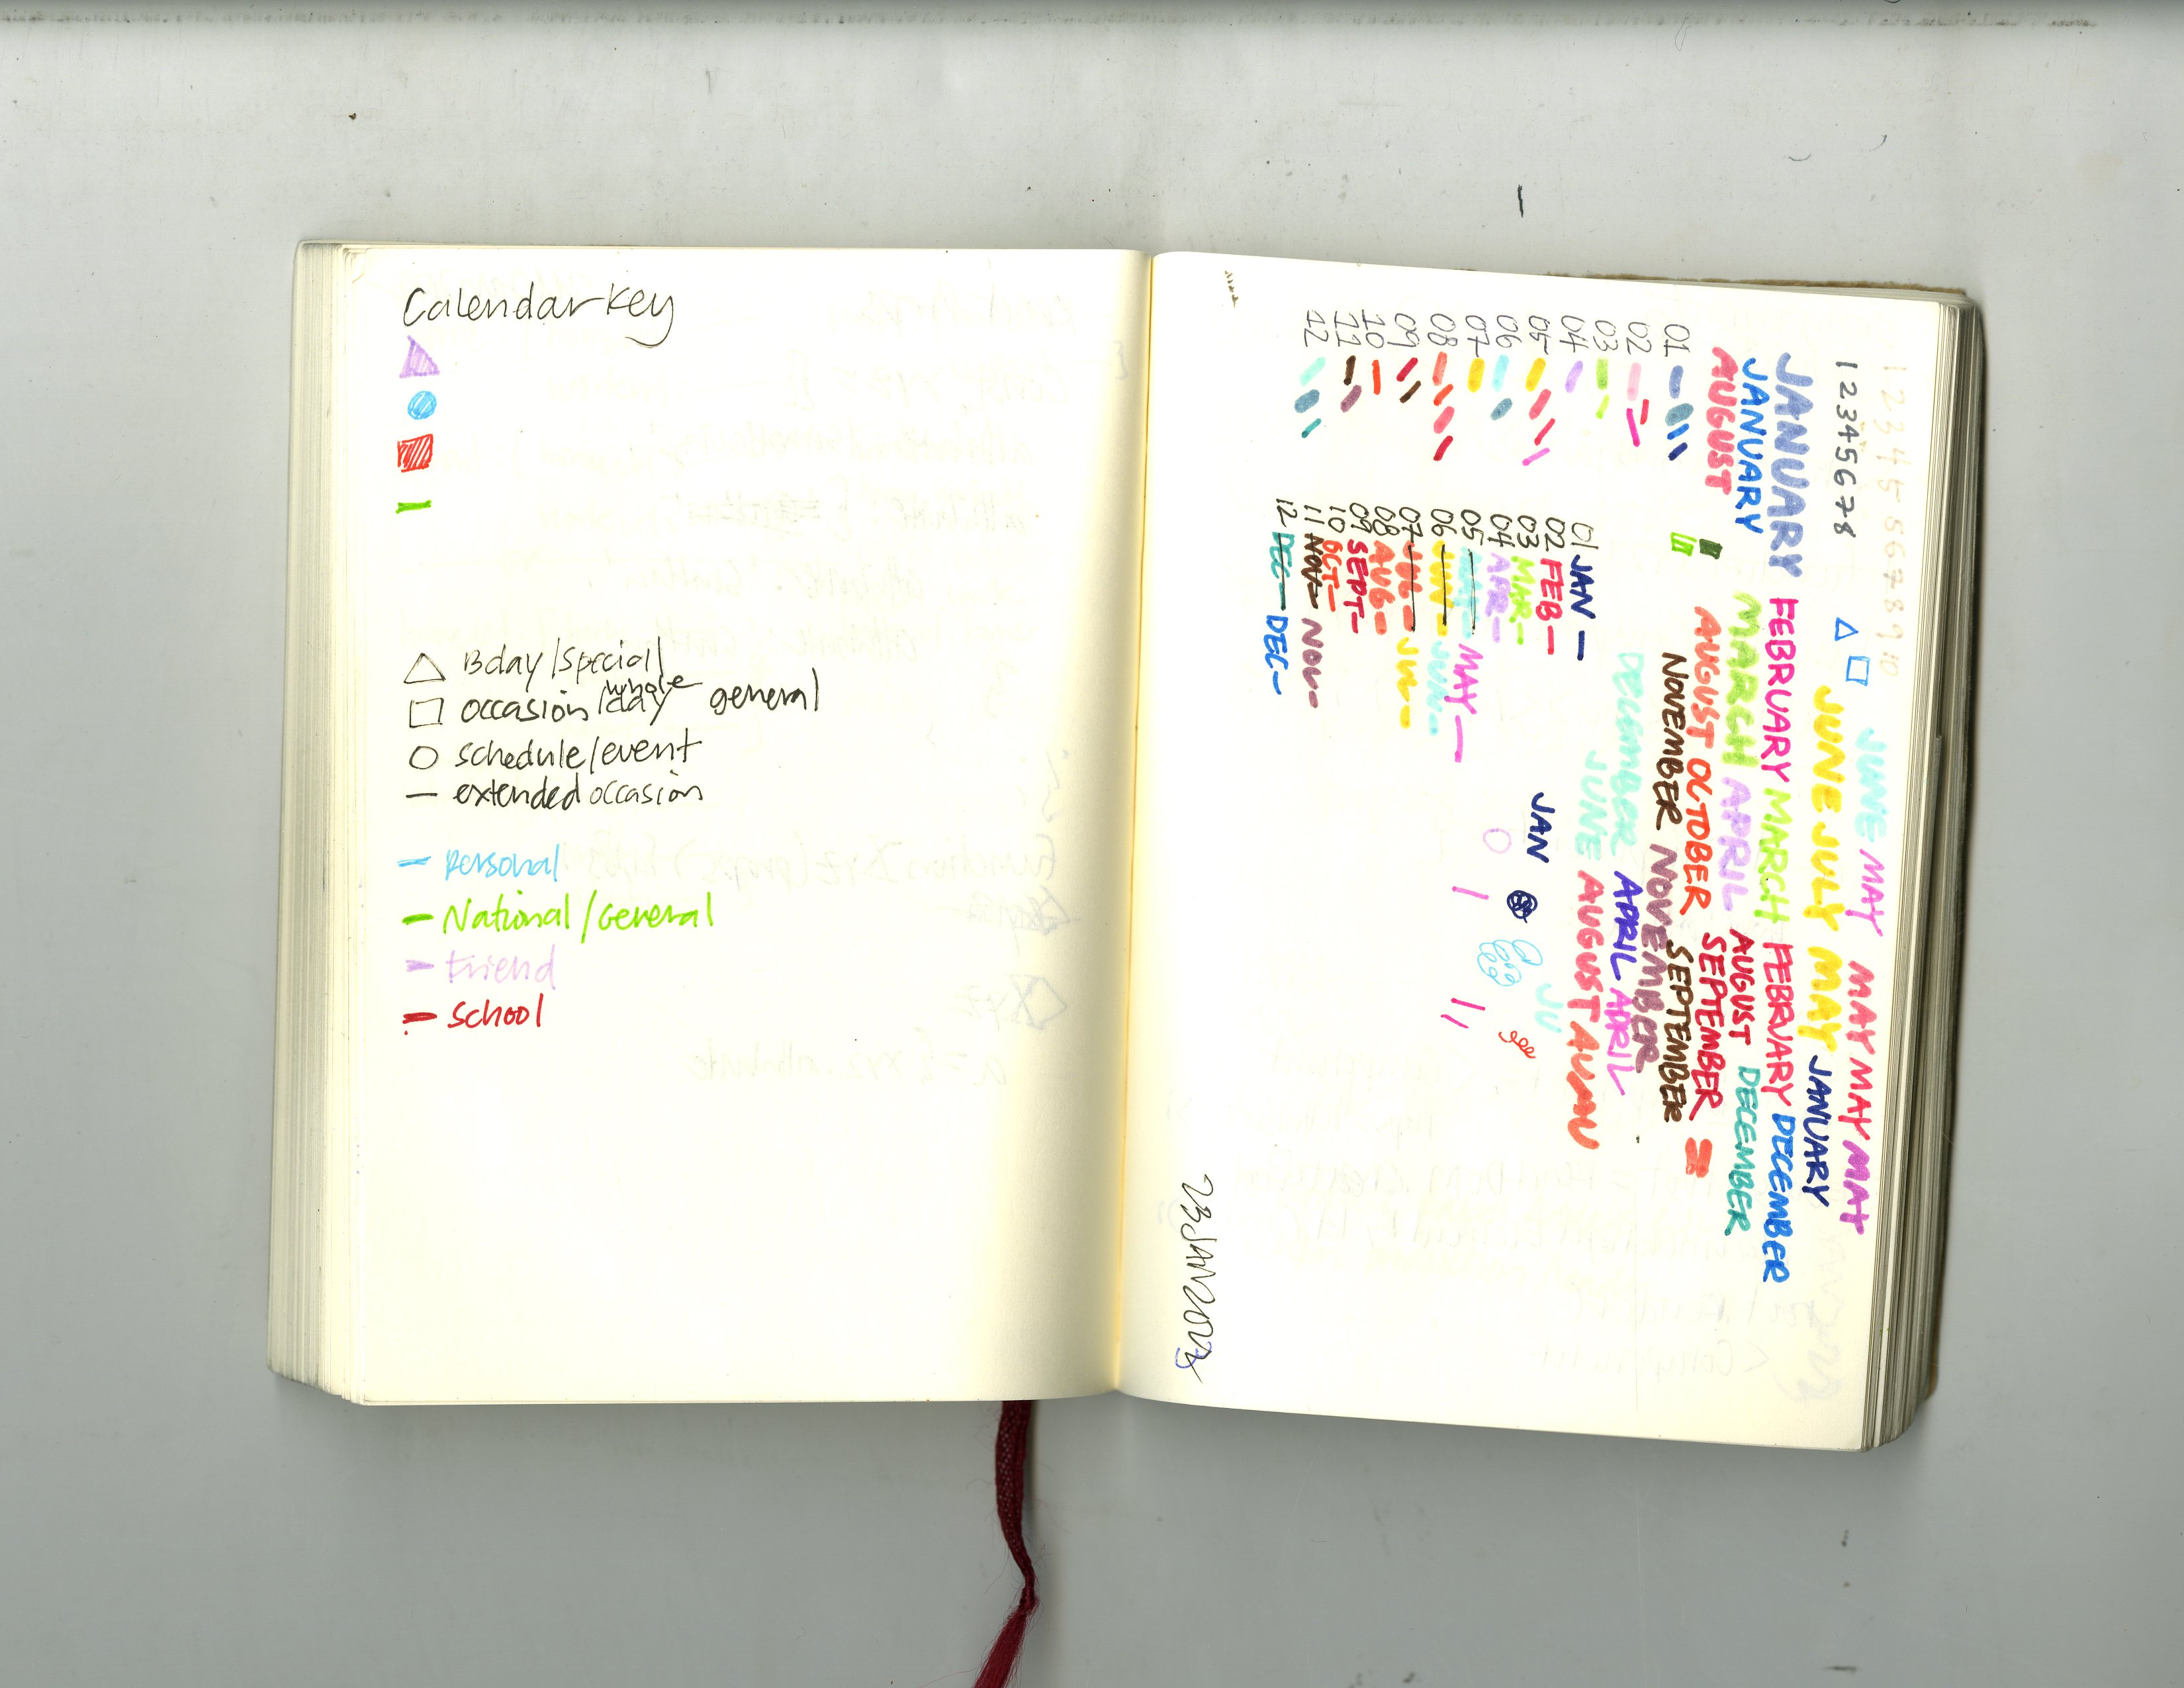 Calendar Key
Bday/special
occasion/whole day general
schedule/event
extended occasion
personal
National/General
friend
school
1 2 3 4 5 6 7 8
JUNE MAY MAY MAY MAY
JUNE JULY MAY JANUARY
JANUARY FEBRUARY MARCH FEBRUARY DECEMBER
JANUARY MARCH APRIL AUGUST DECEMBER
AUGUST AUGUST OCTOBER SEPTEMBER
NOVEMBER NOVEMBER SEPTEMBER
DECEMBER APRIL APRIL
JUNE AUGUST
01
02
03
04
05
06
07
08
09
10
11
12
01 JAN
02 FEB
03 MAR
04 APR
05 MAY MAY
06 JUN JUN
07 JUL JUL
08 AUG
09 SEPT
10 OCT
11 NOV NOV
12 DEC DEC
JAN
JU
23JAN2023